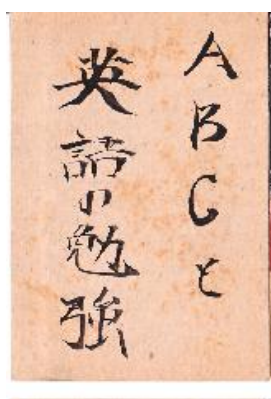 ABCと
英語の勉強